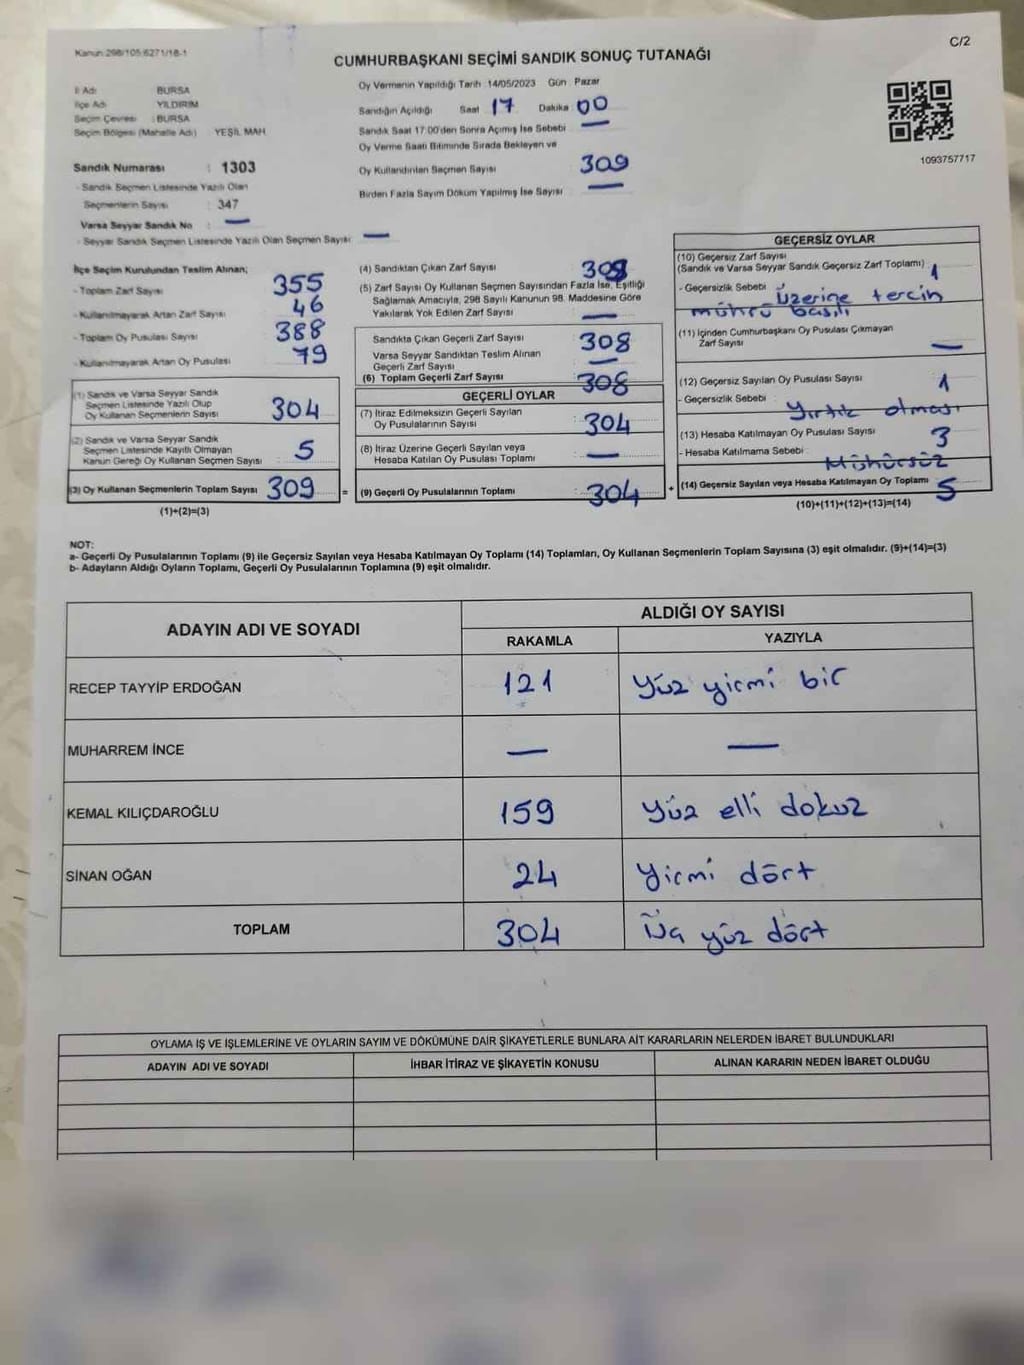 Kanun 298/105 6271/18-1
C/2
CUMHURBAŞKANI SEÇİMİ SANDIK SONUÇ TUTANAĞI
İl Adı BURSA
İlçe Adı YILDIRIM
Seçim Çevresi : BURSA
Seçim Bölgesi (Mahalle Adı) YEŞİL MAH
Sandık Numarası : 1303
- Sandık Seçmen Listesinde Yazılı Olan
Seçmenlerin Sayısı : 347
Varsa Seyyar Sandık No —
- Seyyar Sandık Seçmen Listesinde Yazılı Olan Seçmen Sayısı —
Oy Vermenin Yapıldığı Tarih 14/05/2023 Gün Pazar
Sandığın Açıldığı Saat 17 Dakika 00
Sandık Saat 17 00'den Sonra Açımış İse Sebebi —
Oy Verme Saati Bitiminde Sırada Bekleyen ve
Oy Kullandırılan Seçmen Sayısı 309
Birden Fazla Sayım Döküm Yapılmış İse Sayısı —
1093757717
İlçe Seçim Kurulundan Teslim Alınan;
- Toplam Zarf Sayısı 355
- Kullanılmayarak Artan Zarf Sayısı 46
- Toplam Oy Pusulası Sayısı 388
- Kullanılmayarak Artan Oy Pusulası 79
(1) Sandık ve Varsa Seyyar Sandık
Seçmen Listesinde Yazılı Olup
Oy Kullanan Seçmenlerin Sayısı 304
(2) Sandık ve Varsa Seyyar Sandık
Seçmen Listesinde Kayıtlı Olmayan
Kanun Gereği Oy Kullanan Seçmen Sayısı 5
(3) Oy Kullanan Seçmenlerin Toplam Sayısı 309 =
(1)+(2)=(3)
(4) Sandıktan Çıkan Zarf Sayısı 309
(5) Zarf Sayısı Oy Kullanan Seçmen Sayısından Fazla İse, Eşitliği
Sağlamak Amacıyla, 298 Sayılı Kanunun 98. Maddesine Göre
Yakılarak Yok Edilen Zarf Sayısı : —
Sandıkta Çıkan Geçerli Zarf Sayısı : 308
Varsa Seyyar Sandıktan Teslim Alınan
Geçerli Zarf Sayısı : —
(6) Toplam Geçerli Zarf Sayısı : 308
GEÇERLİ OYLAR
(7) İtiraz Edilmeksizin Geçerli Sayılan
Oy Pusulalarının Sayısı : 304
(8) İtiraz Üzerine Geçerli Sayılan veya
Hesaba Katılan Oy Pusulası Toplamı : —
(9) Geçerli Oy Pusulalarının Toplamı : 304 +
GEÇERSİZ OYLAR
(10) Geçersiz Zarf Sayısı
(Sandık ve Varsa Seyyar Sandık Geçersiz Zarf Toplamı) 1
- Geçersizlik Sebebi : Üzerine tercih
mührü basılı
(11) İçinden Cumhurbaşkanı Oy Pusulası Çıkmayan
Zarf Sayısı —
(12) Geçersiz Sayılan Oy Pusulası Sayısı 1
- Geçersizlik Sebebi : Yırtık olması
(13) Hesaba Katılmayan Oy Pusulası Sayısı 3
- Hesaba Katılmama Sebebi : Mühürsüz
(14) Geçersiz Sayılan veya Hesaba Katılmayan Oy Toplamı 5
(10)+(11)+(12)+(13)=(14)
NOT:
a- Geçerli Oy Pusulalarının Toplamı (9) ile Geçersiz Sayılan veya Hesaba Katılmayan Oy Toplamı (14) Toplamları, Oy Kullanan Seçmenlerin Toplam Sayısına (3) eşit olmalıdır. (9)+(14)=(3)
b- Adayların Aldığı Oyların Toplamı, Geçerli Oy Pusulalarının Toplamına (9) eşit olmalıdır.
ADAYIN ADI VE SOYADI
ALDIĞI OY SAYISI
RAKAMLA YAZIYLA
RECEP TAYYİP ERDOĞAN 121 Yüz yirmi bir
MUHARREM İNCE — —
KEMAL KILIÇDAROĞLU 159 Yüz elli dokuz
SİNAN OĞAN 24 Yirmi dört
TOPLAM 304 Üç yüz dört
OYLAMA İŞ VE İŞLEMLERİNE VE OYLARIN SAYIM VE DÖKÜMÜNE DAİR ŞİKAYETLERLE BUNLARA AİT KARARLARIN NELERDEN İBARET BULUNDUKLARI
ADAYIN ADI VE SOYADI İHBAR İTİRAZ VE ŞİKAYETİN KONUSU ALINAN KARARIN NEDEN İBARET OLDUĞU